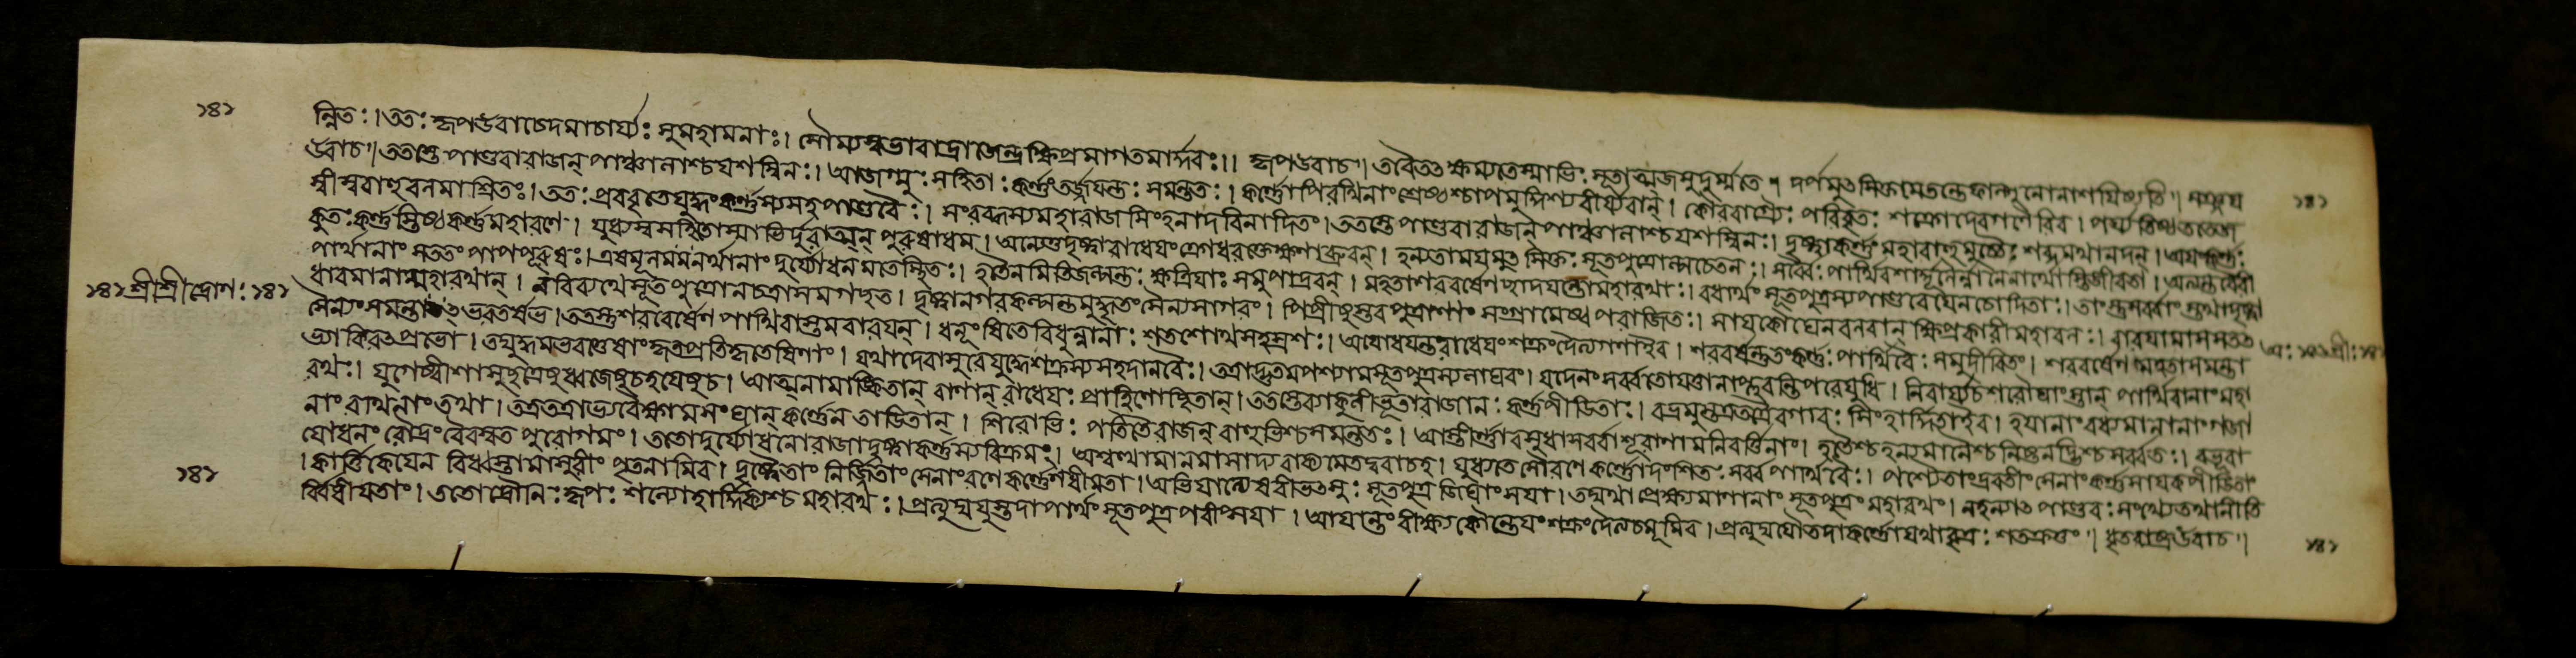 ১৪১
ন্বিতঃ। ততঃ কৃপউবাচেদমাচার্য্যঃ সুমহামনাঃ। সৌম্যস্বভাবাদ্রাজেন্দ্র ক্ষিপ্রমাগতমার্দ্দবঃ।। কৃপউবাচ।। তবৈতৎ ক্ষম্যতেস্মাভিঃ সূতাত্মজসুদুর্ম্মতে। দর্পমুৎসিক্তমেতন্তেফাল্গুনোনাশয়িষ্যতি।। সঞ্জয়
উবাচ।। ততস্তেপাণ্ডবারাজন্ পাঞ্চালাশ্চযশস্বিনঃ। আজগ্মুঃ সহিতাঃ কর্ণ্ণংতর্জ্জয়ন্তঃ সমন্ততঃ। কর্ণ্ণোপিরথিনাংশ্রেষ্ঠশ্চাপমুদ্দিশ্যবীর্য্যবান্। কৌরবাগ্র্যৈঃ পরিবৃতঃ শক্রোদেবগণৈরিব। পর্য্যতিষ্ঠততেজ
স্বীস্ববাহুবলমাশ্রিতঃ। ততঃ প্রববৃতেযুদ্ধংকর্ণ্ণস্যসহপাণ্ডবৈঃ। সংরব্ধস্যমহারাজসিংহনাদবিনাদিতং। ততস্তেপাণ্ডবারাজন্ পাঞ্চালাশ্চযশস্বিনঃ। দৃষ্ট্বাকর্ণ্ণংমহাবাহুমুচ্চৈঃ শব্দমথানদন্। অয়ংকর্ণ্ণঃ
কুতঃ কর্ণ্ণস্তিষ্ঠকর্ণ্ণমহারণে। যুধ্যস্বসহিতোস্মাভির্দুরাত্মন্ পুরুষাধম। অন্যেতুদৃষ্ট্বারাধেয়ংক্রোধরক্তেক্ষণাব্রুবন্। হন্যতাময়মুৎসিক্তঃ সূতপুত্রোল্পচেতনঃ। সর্ব্বৈঃ পার্থিবশার্দ্দূলৈর্ন্নানেনার্থোস্তিজীবতা। অত্যন্তবৈরী
পার্থানাং সততং পাপপূরুষঃ। এষমূলমনর্থানাং দুর্য্যোধনমতেস্থিতঃ। হতৈনমিতিজল্পন্তঃ ক্ষত্রিয়াঃ সমুপাদ্রবন্। মহতাশরবর্ষেণচ্ছাদয়ন্তোমহারথাঃ। বধার্থং সূতপুত্রস্যপাণ্ডবেয়েনচোদিতাঃ। তাংস্তুসর্ব্বাংস্তথাদৃষ্ট্বা
ধাবমানান্মহারথান্। নবিব্যথেসূতপুত্রোনচত্রাসমগচ্ছত। দৃষ্ট্বানগরকল্পন্তমুদ্ধূতংসৈন্যসাগরং। পিপ্রীষুস্তবপুত্রাণাং সংগ্রামেষ্বপরাজিতঃ। সায়কৌঘেনবলবান্ ক্ষিপ্রকারীমহাবলঃ। বারয়ামাসতৎ
১৪১ শ্রীশ্রীদ্রোণঃ ১৪১
সৈন্যংসমন্তাৎভরতর্ষভ। ততস্তুশরবর্ষেণ পার্থিবাস্তমবারয়ন্। ধনূংষিতেবিধুন্বানাঃ শতশোথসহস্রশঃ। অযোধয়ন্তরাধেয়ংশক্রংদৈত্যগণাইব। শরবর্ষন্ততংকর্ণ্ণঃ পার্থিবৈঃ সমুদীরিতং। শরবর্ষেণমহতাসমন্তা
দ্ব্যকিরৎপ্রভো। তদ্যুদ্ধমভবত্তেষাংকৃতপ্রতিকৃতেষিণাং। যথাদেবাসুরেযুদ্ধেশক্রস্যসহদানবৈঃ। তত্রাদ্ভুতমপশ্যামসূতপুত্রস্যলাঘবং। যদেনংসর্ব্বতোযত্তানাপ্নুবন্তিপরেযুধি। নিবার্য্যচশরৌঘাংস্তান্ পার্থিবানাংমহা
রথঃ। যুগেষ্বীশাসুছত্রেষুধ্বজেষুচহয়েষুচ। আত্মনামাঙ্কিতান্ বাণান্ রাধেয়ঃ প্রাহিণোচ্ছিতান্। ততস্তেব্যাকুলীভূতারাজানঃ কর্ণ্ণপীড়িতাঃ। বভ্রমুস্তত্রতত্রৈবগাবঃ সিংহার্দ্দিতাইব। হয়ানাংবধ্যমানানাংগজা
নাংরথিনাংতথা। তত্রতত্রাভ্যবেক্ষামসংঘান্ কর্ণ্ণেনতাড়িতান্। শিরোভিঃ পতিতৈরাজন্ বাহুভিশ্চসমন্ততঃ। আস্তীর্ণ্ণাবসুধাসর্ব্বাশূরাণামনিবর্ত্তিনাং। হতৈশ্চহন্যমানৈশ্চনিষ্টনদ্ভিশ্চসর্ব্বতঃ। বভূবা
যোধনংরৌদ্রংবৈবস্বতপুরোপমং। ততোদুর্য্যোধনোরাজাদৃষ্ট্বাকর্ণ্ণস্যবিক্রমং। অশ্বত্থামানমাসাদ্যবাক্যমেতদুবাচহ। যুধ্যতেসৌরণেকর্ণ্ণোদংশিতঃ সর্ব্বপার্থিবৈঃ। পশ্যৈতাংদ্রবতীংসেনাংকর্ণ্ণসায়কপীড়িতাং
। কার্ত্তিকেয়েন বিধ্বস্তামাসুরীংপৃতনামিব। দৃষ্ট্বৈতাং নির্জ্জিতাংসেনাংরণেকর্ণ্ণেনধীমতা। অভিযাত্যেষবীভৎসুঃ সূতপুত্রজিঘাংসয়া। তদ্যথাপ্রেক্ষ্যমাণানাং সূতপুত্রং মহারথং। নহন্যাৎপাণ্ডবঃ সংখ্যেতথানীতি
১৪১
র্বিধীয়তাং। ততোদ্রৌণিঃ কৃপঃ শল্যোহার্দ্দিক্যশ্চমহারথঃ। প্রত্যুদ্যযুস্তদাপার্থং সূতপুত্রপরীপ্সয়া। আয়ান্তংবীক্ষ্যকৌন্তেয়ংশক্রংদৈত্যচমূমিব। প্রত্যুদ্যযৌতদাকর্ণ্ণোযথাবৃত্রঃ শতক্রতুং।। ধৃতরাষ্ট্রউবাচ।।
১৪১